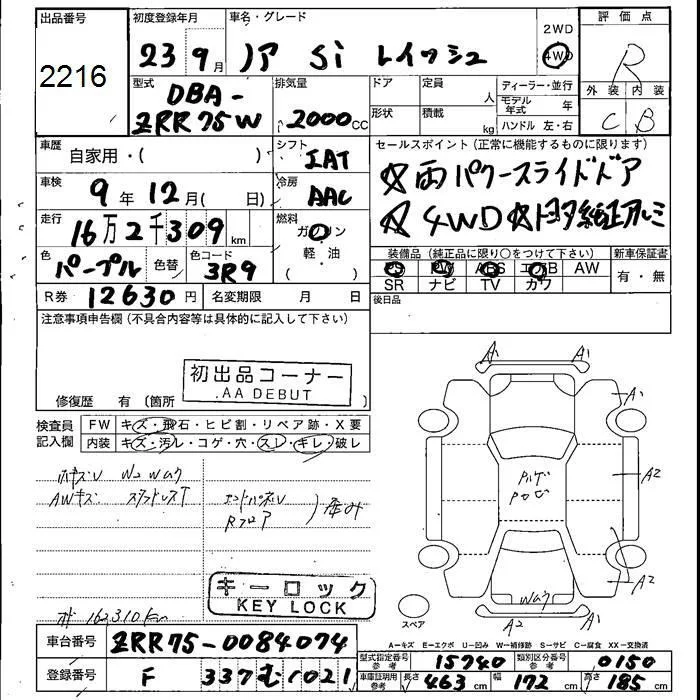 出品番号 初度登録年月 車名・グレード 2WD 評価点
2216 23 9月 ノア Si レイッシュ 4WD R
型式 排気量 ドア 定員 人 ディーラー・並行 外装 内装
DBA- モデル年式 年
ZRR75W 2000CC 形状 積載 kg ハンドル 左・右 C B
車歴 自家用・( ) シフト IAT セールスポイント(正常に機能するものに限ります)
車検 9年12月( 日) 冷房 AAC ☆両パワースライドドア
走行 16万2千309km 燃料 ガソリン 軽・油 ( ) ☆4WD ☆トヨタ純正アルミ
色 パープル 色替 色コード 3R9 装備品(純正品に限り○をつけて下さい) 新車保証書
PS PW ABS エアB AW 有・無
R券 12630円 名変期限 月 日 SR ナビ TV カワ
注意事項申告欄(不具合内容等は具体的に記入して下さい) 後日品
初出品コーナー
AA DEBUT
修復歴 有(箇所 )
検査員記入欄 FW キズ・飛石・ヒビ割・リペア跡・X要
内装 キズ・汚レ・コゲ・穴・スレ・キレ・破レ
A1 A1
A1
小キズU W2 Wワク
AWキズ エンドパネルU
Rフロア
A2
A2
Wワク
A2 A1
キーロック
KEY LOCK
スペア
162310Km
A-キズ E-エクボ U-凹み W-補修跡 S-サビ C-腐食 XX-交換済
車台番号 ZRR75-0084074
型式指定番号 参考 15740 類別区分番号 参考 0150
登録番号 F 337む1021
車庫証明用 参考 長さ 463cm 幅 172cm 高さ 185cm